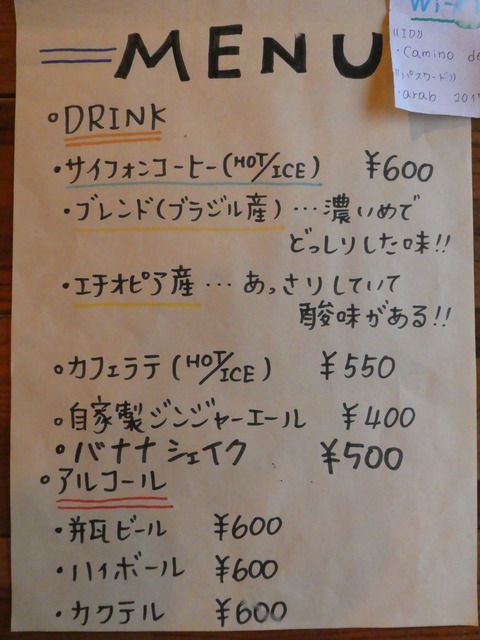 MENU
Wi-Fi
"ID"
・Camino de
"パスワード"
・arab 201
○DRINK
・サイフォンコーヒー(HOT/ICE) ¥600
・ブレンド(ブラジル産)…濃いめで
どっしりした味!!
・エチオピア産…あっさりしていて
酸味がある!!
○カフェラテ(HOT/ICE) ¥550
○自家製ジンジャーエール ¥400
○バナナシェイク ¥500
○アルコール
・瓶ビール ¥600
・ハイボール ¥600
・カクテル ¥600